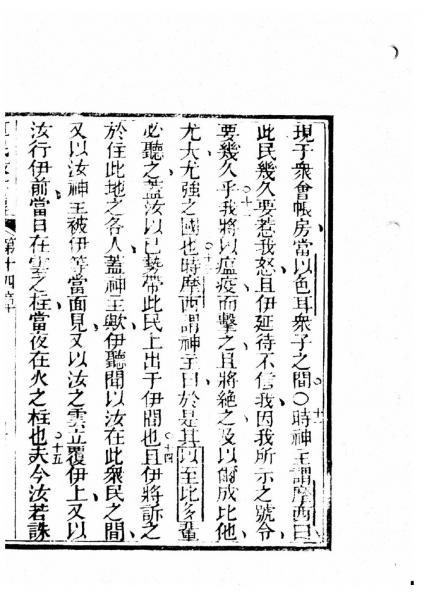 現于衆會帳房當以色耳衆子之間〇時神主謂摩西曰
十一
此民幾久要惹我怒且伊延待不信我因我所示之號令
要幾久乎我將以瘟疫而擊之且將絶之及以爾成比他
十二
尤大尤強之國也時摩西謂神主曰於是其以至比多輩
十三
必聽之蓋汝以己勢帶此民上出于伊間也且伊將訴之
十四
於住此地之各人蓋神主歟伊聽聞以汝在此衆民之間
又以汝神主被伊等當面見又以汝之雲立覆伊上又以
汝行伊前當日在雲之柱當夜在火之柱也夫今汝若誅
十五
第十四章